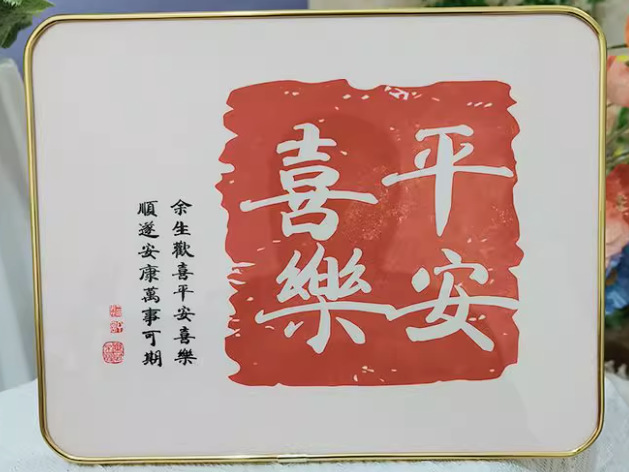 平安
喜樂
余生歡喜平安喜樂
順遂安康萬事可期